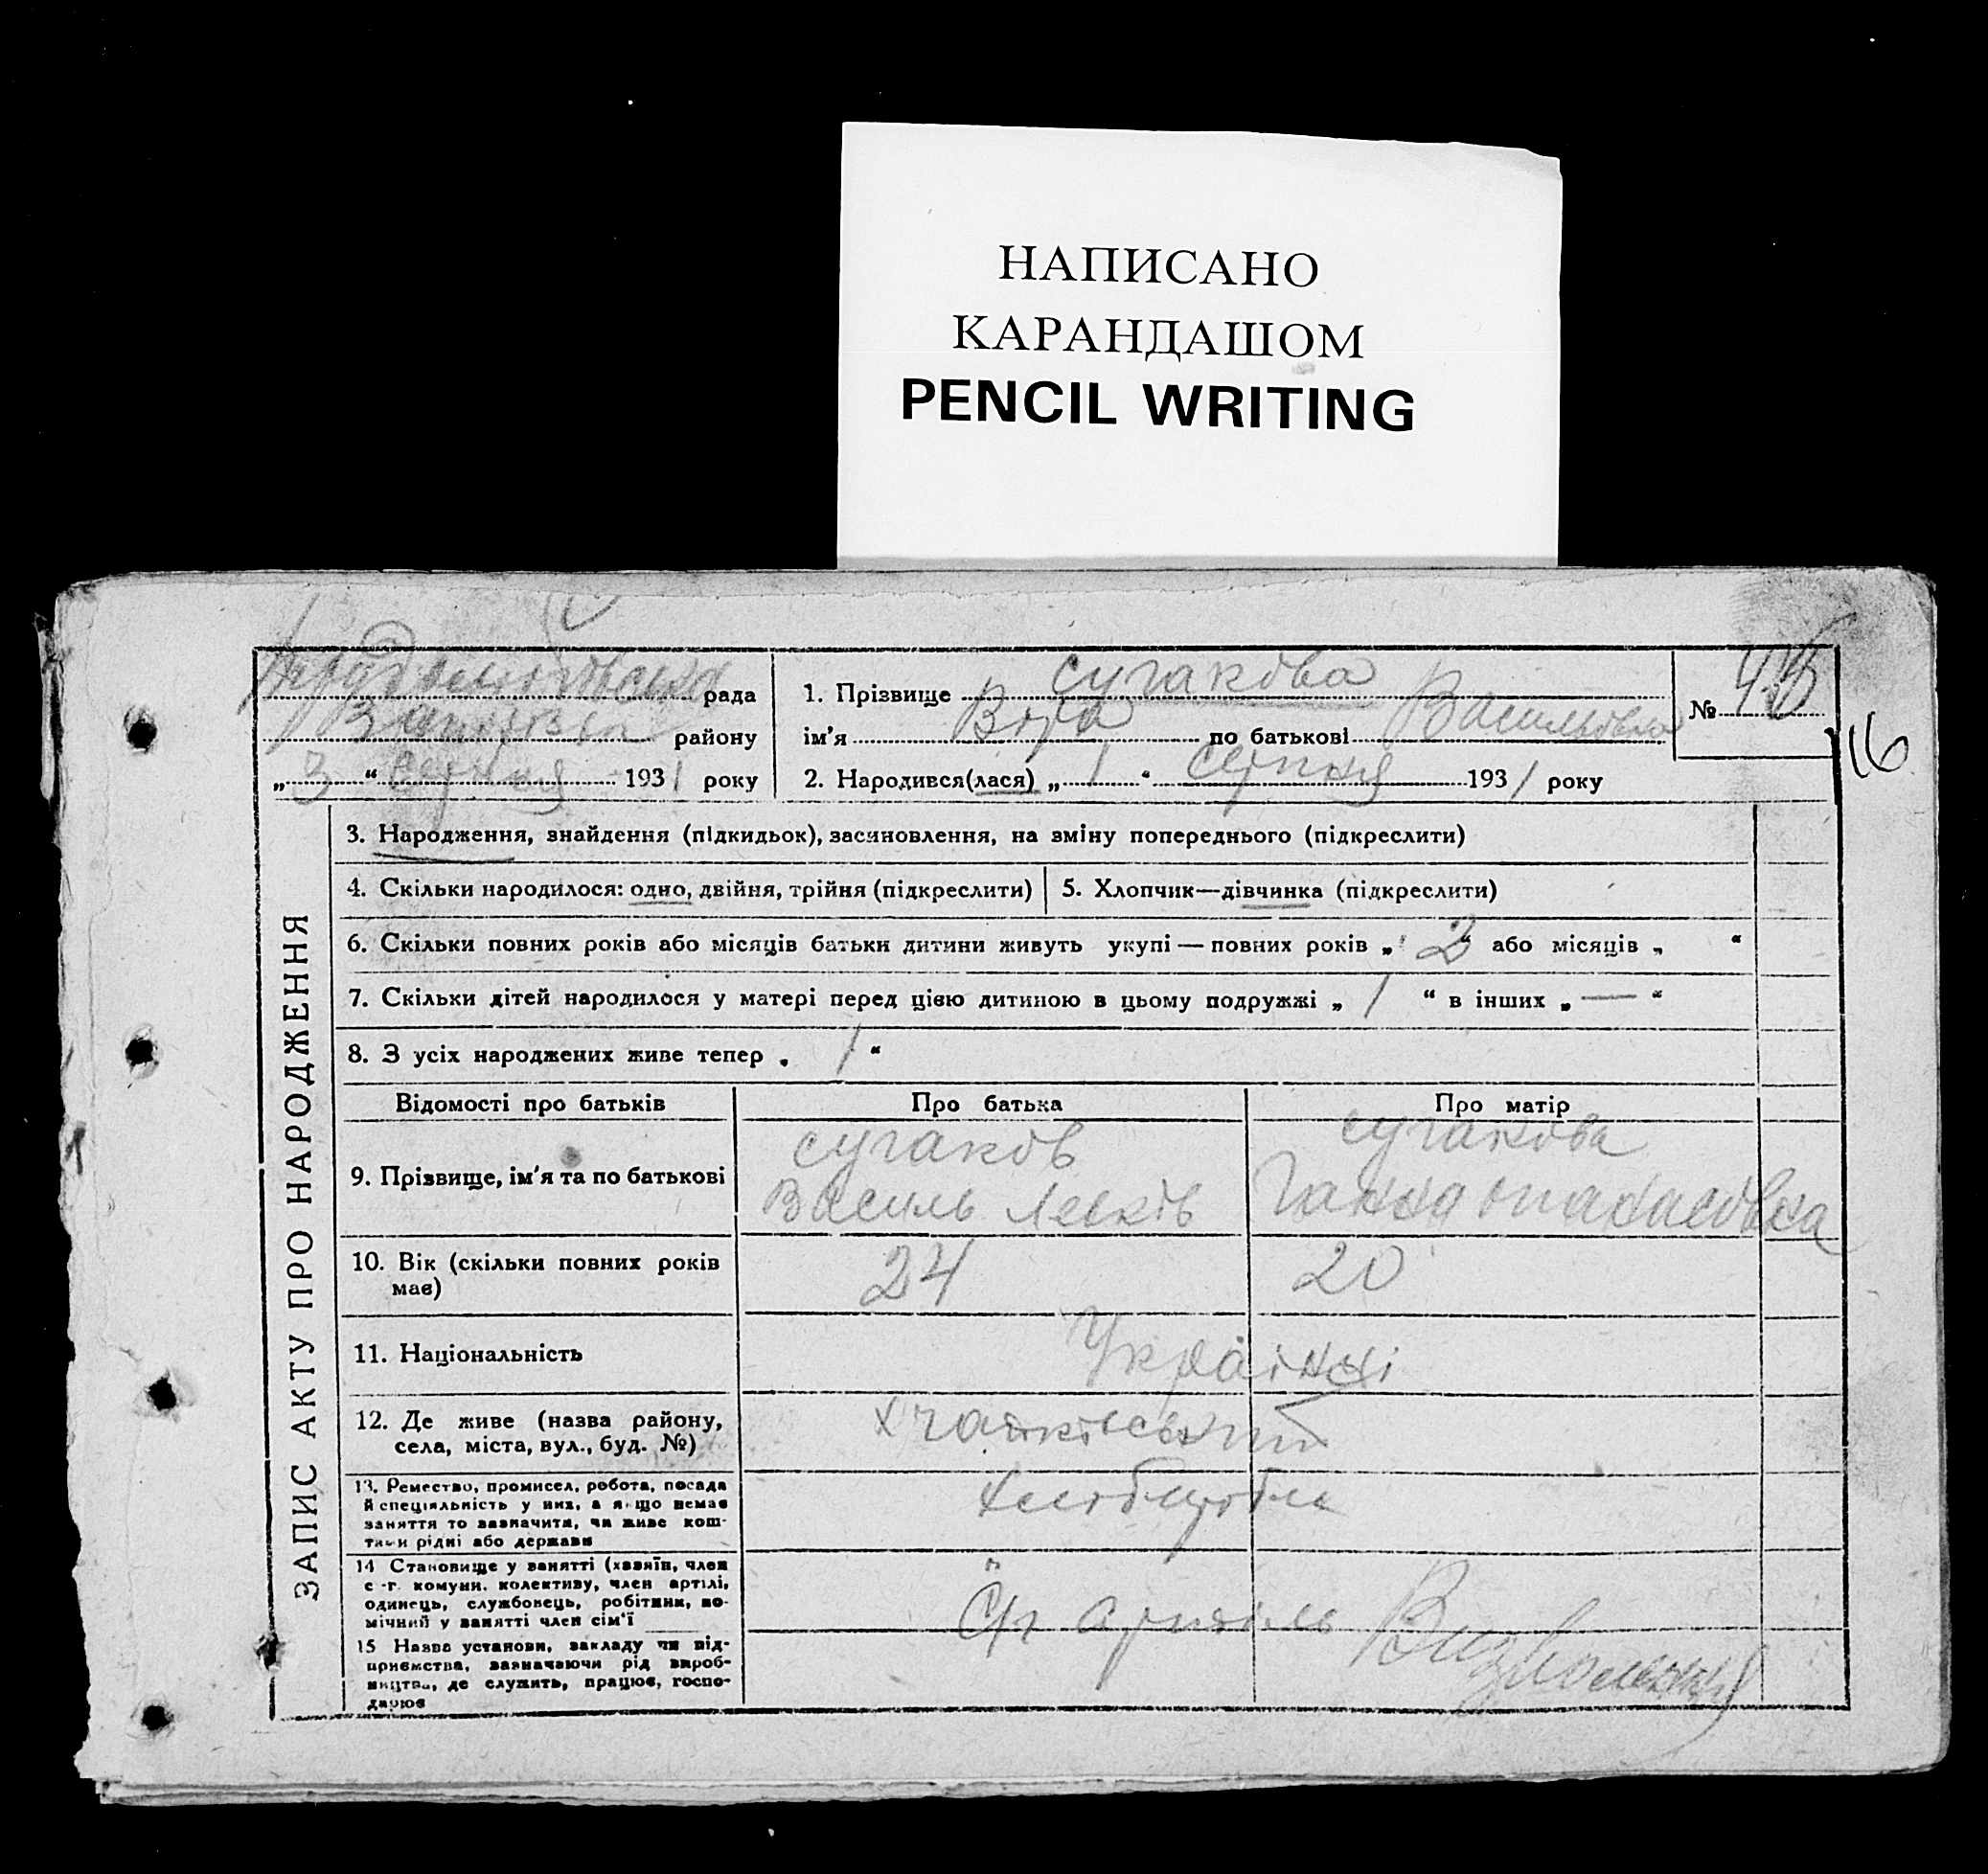 НАПИСАНО
КАРАНДАШОМ
PENCIL WRITING
рада
району
„ 3 “ серпня 1931 року
1. Прізвище Сугакова
ім'я Віра по батькові Васильовна
2. Народився(лася) „ 1 “ серпня 1931 року
№
116
ЗАПИС АКТУ ПРО НАРОДЖЕННЯ
3. Народження, знайдення (підкидьок), засиновлення, на зміну попереднього (підкреслити)
4. Скільки народилося: одно, двійня, трійня (підкреслити)
5. Хлопчик—дівчинка (підкреслити)
6. Скільки повних років або місяців батьки дитини живуть укупі — повних років „ 2 “ або місяців „ “
7. Скільки дітей народилося у матері перед цією дитиною в цьому подружжі „ 1 “ в інших „ — “
8. З усіх народжених живе тепер „ 1 “
Відомості про батьків
Про батька
Про матір
9. Прізвище, ім'я та по батькові
Сугаков
Василь
Сугакова
Ганна
10. Вік (скільки повних років
має)
24
20
11. Національність
Українці
12. Де живе (назва району,
села, міста, вул., буд. №)
13. Ремество, промисел, робота, посада
й спеціяльність у них, а якщо немає
заняття то зазначити, чи живе кош-
тами рідні або держави
14 Становище у занятті (хазяїн, член
с.-г. комуни, колективу, член артілі,
одинець, службовець, робітник, по-
мічний у занятті член сім'ї
С/г артіль
15 Назва установи, закладу чи під-
приємства, зазначаючи рід вироб-
ництва, де служить, працює, госпо-
дарює